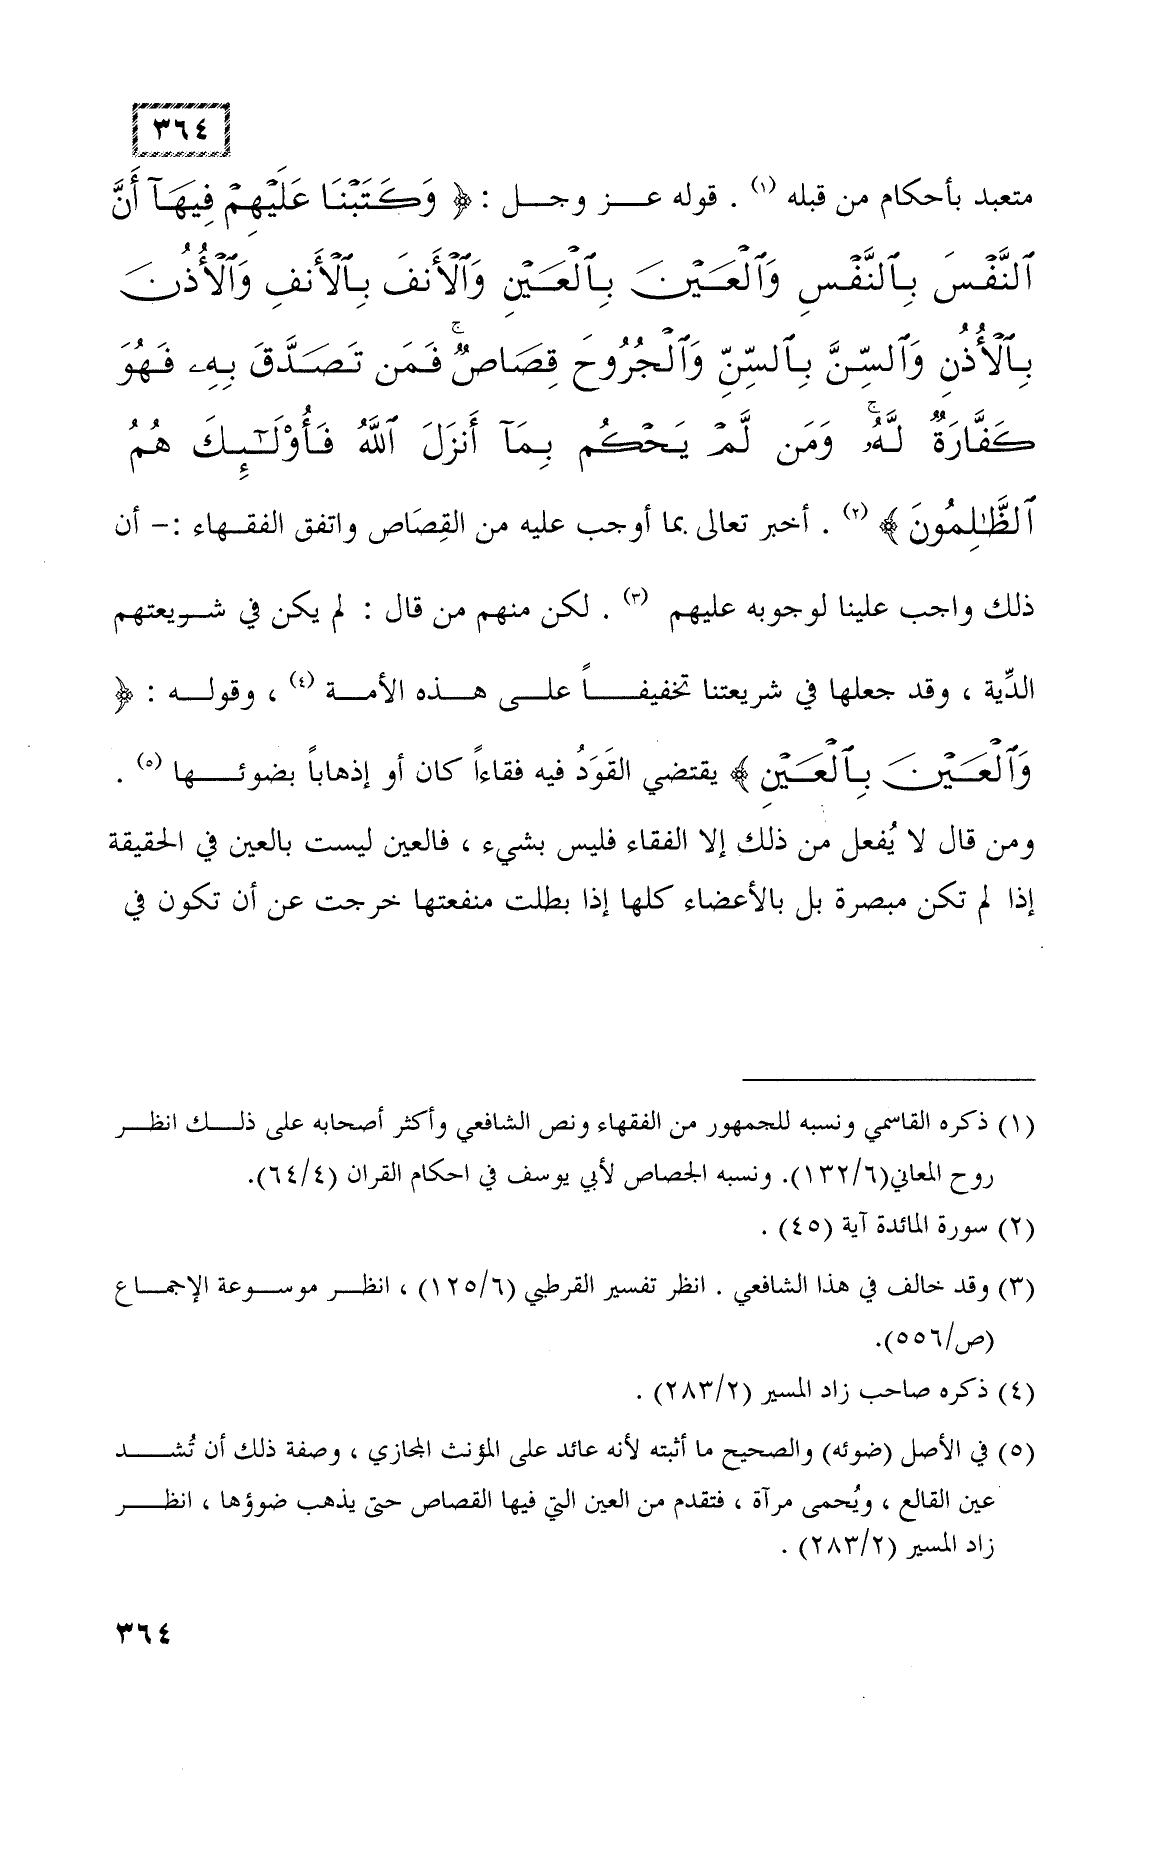 ٣٦٤
متعبد بأحكام من قبله (١) . قوله عز وجل : ﴿ وَكَتَبْنَا عَلَيْهِمْ فِيهَآ أَنَّ
ٱلنَّفْسَ بِٱلنَّفْسِ وَٱلْعَيْنَ بِٱلْعَيْنِ وَٱلْأَنفَ بِٱلْأَنفِ وَٱلْأُذُنَ
بِٱلْأُذُنِ وَٱلسِّنَّ بِٱلسِّنِّ وَٱلْجُرُوحَ قِصَاصٌ ۚ فَمَن تَصَدَّقَ بِهِۦ فَهُوَ
كَفَّارَةٌ لَّهُۥ ۚ وَمَن لَّمْ يَحْكُم بِمَآ أَنزَلَ ٱللَّهُ فَأُوْلَٰٓئِكَ هُمُ
ٱلظَّٰلِمُونَ ﴾ (٢) . أخبر تعالى بما أوجب عليه من القِصَاص واتفق الفقهاء :– أن
ذلك واجب علينا لوجوبه عليهم (٣) . لكن منهم من قال : لم يكن في شريعتهم
الدِّية ، وقد جعلها في شريعتنا تخفيفاً على هذه الأمة (٤) ، وقوله : ﴿
وَٱلْعَيْنَ بِٱلْعَيْنِ ﴾ يقتضي القَوَدُ فيه فقاءاً كان أو إذهاباً بضوئها (٥) .
ومن قال لا يُفعل من ذلك إلا الفقاء فليس بشيء ، فالعين ليست بالعين في الحقيقة
إذا لم تكن مبصرة بل بالأعضاء كلها إذا بطلت منفعتها خرجت عن أن تكون في
(١) ذكره القاسمي ونسبه للجمهور من الفقهاء ونص الشافعي وأكثر أصحابه على ذلك انظر
روح المعاني(١٣٢/٦). ونسبه الجصاص لأبي يوسف في احكام القران (٦٤/٤).
(٢) سورة المائدة آية (٤٥) .
(٣) وقد خالف في هذا الشافعي . انظر تفسير القرطبي (١٢٥/٦) ، انظر موسوعة الإجماع
(ص/٥٥٦).
(٤) ذكره صاحب زاد المسير (٢٨٣/٢) .
(٥) في الأصل (ضوئه) والصحيح ما أثبته لأنه عائد على المؤنث المجازي ، وصفة ذلك أن تُشد
عين القالع ، ويُحمى مرآة ، فتقدم من العين التي فيها القصاص حتى يذهب ضوؤها ، انظر
زاد المسير (٢٨٣/٢) .
٣٦٤